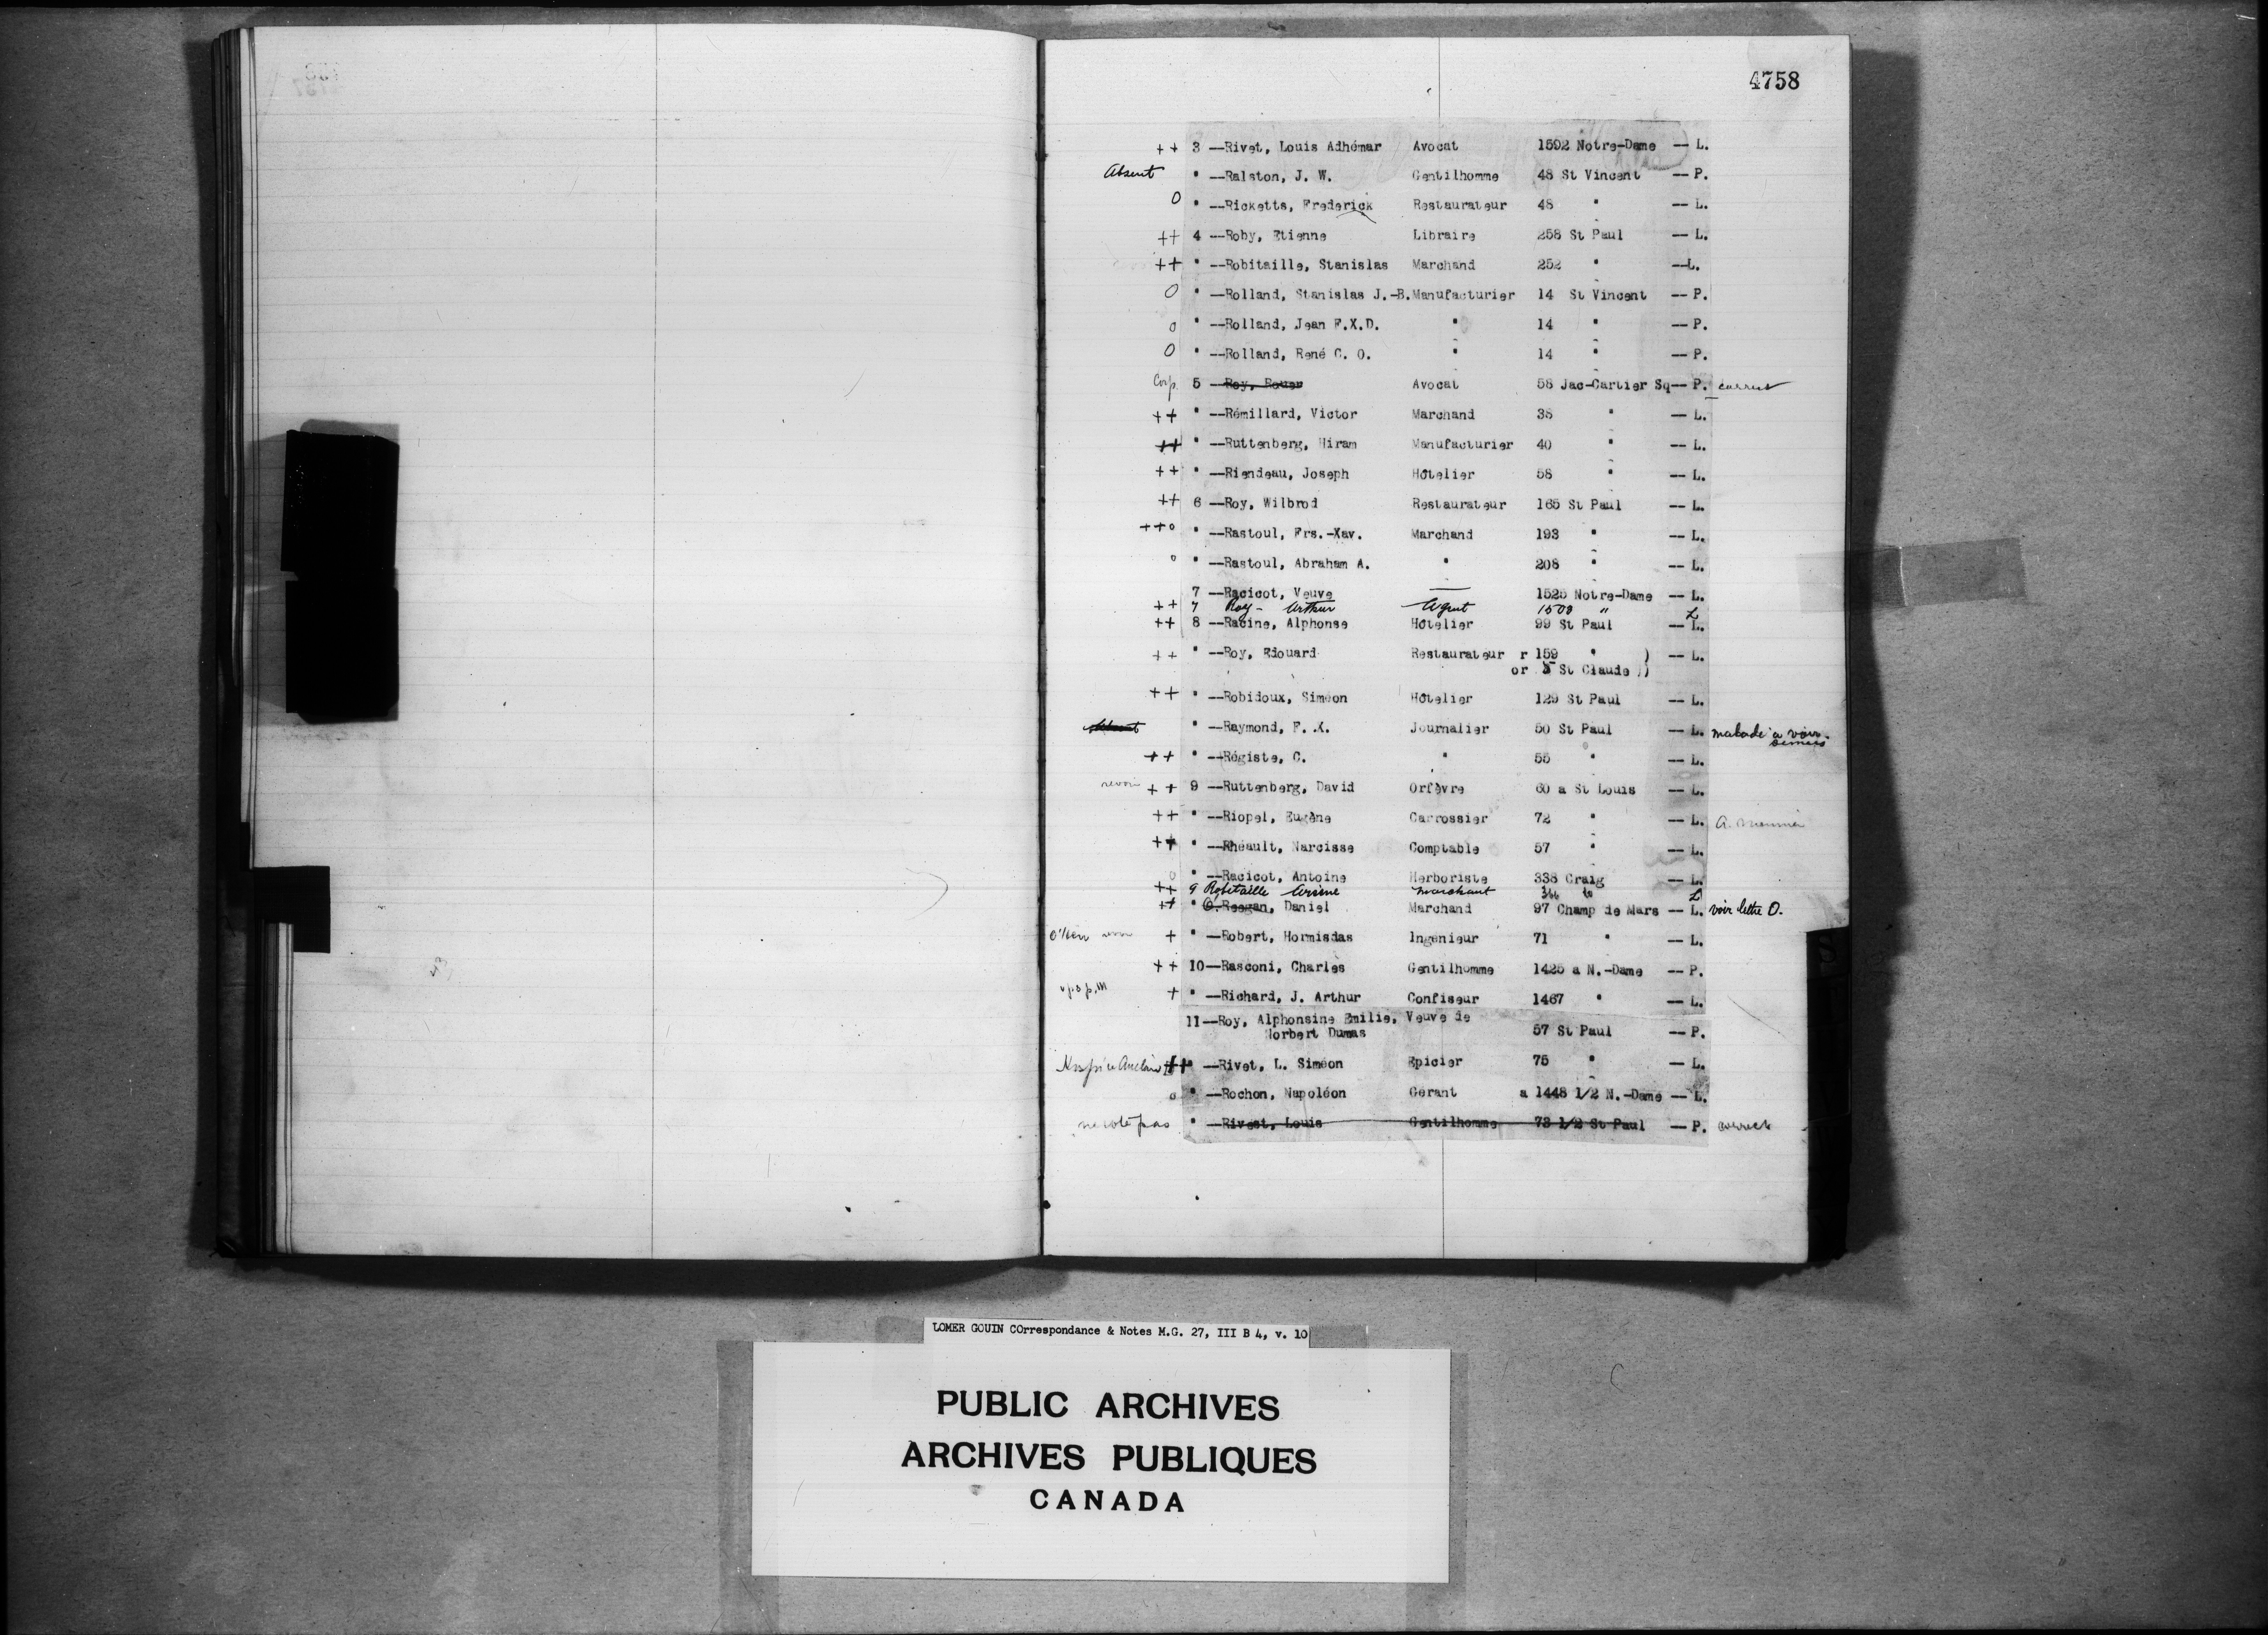 4758
++ 3 --Rivet, Louis Adhémar Avocat 1592 Notre-Dame -- L.
Absent " --Ralston, J. W. Gentilhomme 48 St Vincent -- P.
O " --Ricketts, Frederick Restaurateur 48 " -- L.
++ 4 --Roby, Etienne Libraire 258 St Paul -- L.
++ " --Robitaille, Stanislas Marchand 252 " --L.
O " --Rolland, Stanislas J.-B. Manufacturier 14 St Vincent -- P.
o " --Rolland, Jean F.X.D. " 14 " -- P.
O " --Rolland, René C. O. " 14 " -- P.
Corp. 5 --Roy, Rouer Avocat 58 Jac-Cartier Sq-- P. correct
++ " --Rémillard, Victor Marchand 38 " -- L.
++ " --Ruttenberg, Hiram Manufacturier 40 " -- L.
++ " --Riendeau, Joseph Hôtelier 58 " -- L.
++ 6 --Roy, Wilbrod Restaurateur 165 St Paul -- L.
++o " --Rastoul, Frs.-Xav. Marchand 193 " -- L.
o " --Rastoul, Abraham A. " 208 " -- L.
7 --Racicot, Veuve — 1525 Notre-Dame -- L.
++ 7 Roy - Arthur Agent 1500 " L
++ 8 --Racine, Alphonse Hôtelier 99 St Paul -- L.
++ " --Roy, Edouard Restaurateur r 159 " ) -- L.
or 5 St Claude ))
++ " --Robidoux, Siméon Hôtelier 129 St Paul -- L.
Absent " --Raymond, F. X. Journalier 50 St Paul -- L. malade a voir
++ " --Régiste, C. " 55 " -- L.
revoir ++ 9 --Ruttenberg, David Orfèvre 60 a St Louis -- L.
++ " --Riopel, Eugène Carrossier 72 " -- L. A.
++ " --Rhéault, Narcisse Comptable 57 " -- L.
o " --Racicot, Antoine Herboriste 338 Craig -- L.
++ 9 Robitaille Arsène marchant L
++ " O. Reegan, Daniel Marchand 97 Champ de Mars -- L. voir lettre O.
+ " --Robert, Hormisdas Ingénieur 71 " -- L.
++ 10--Rasconi, Charles Gentilhomme 1425 a N.-Dame -- P.
+ " --Richard, J. Arthur Confiseur 1467 " -- L.
11--Roy, Alphonsine Emilie, Veuve de
Norbert Dumas 57 St Paul -- P.
++ " --Rivet, L. Siméon Epicier 75 " -- L.
o " --Rochon, Napoléon Gérant a 1448 1/2 N.-Dame -- L.
ne vote pas " --Rivest, Louis Gentilhomme 73 1/2 St Paul -- P. correct
LOMER GOUIN COrrespondance & Notes M.G. 27, III B 4, v. 10
PUBLIC ARCHIVES
ARCHIVES PUBLIQUES
CANADA